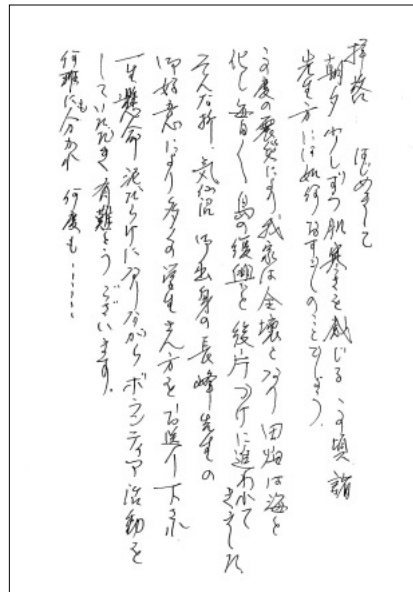 拝啓 はじめまして
朝夕少しずつ肌寒さを感じるこの頃 諸
先生方には如何お過しのことでしょう
この度の震災により我家は全壊となり田畑は海と
化し毎日く島の復興と後片づけに追われて
きました
そんな折、気仙沼御出身の長峰先生の
御好意により多くの学生さん方をお送り下され
一生懸命泥だらけになりながらボランティア活動を
していただき有難とうございます。
何班にも分かれ 何度も……